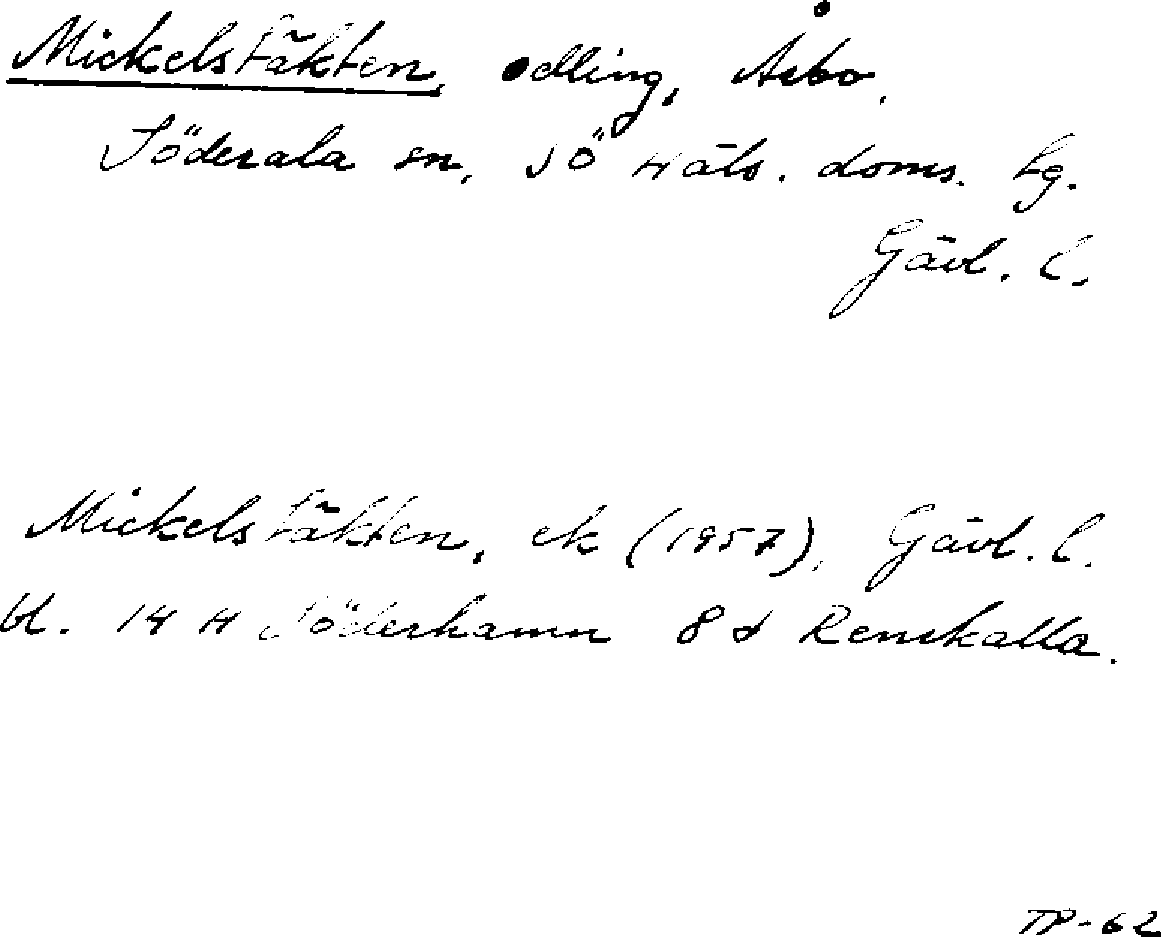 Mickelstäkten, odling, Åsbo,
Söderala sn, sö Häls. doms. tg.
Gävl. l.
Mickelstäkten, ek (1957), Gävl. l.
bl. 14 H Söderhamn 8 d Renskalla.
TP-62